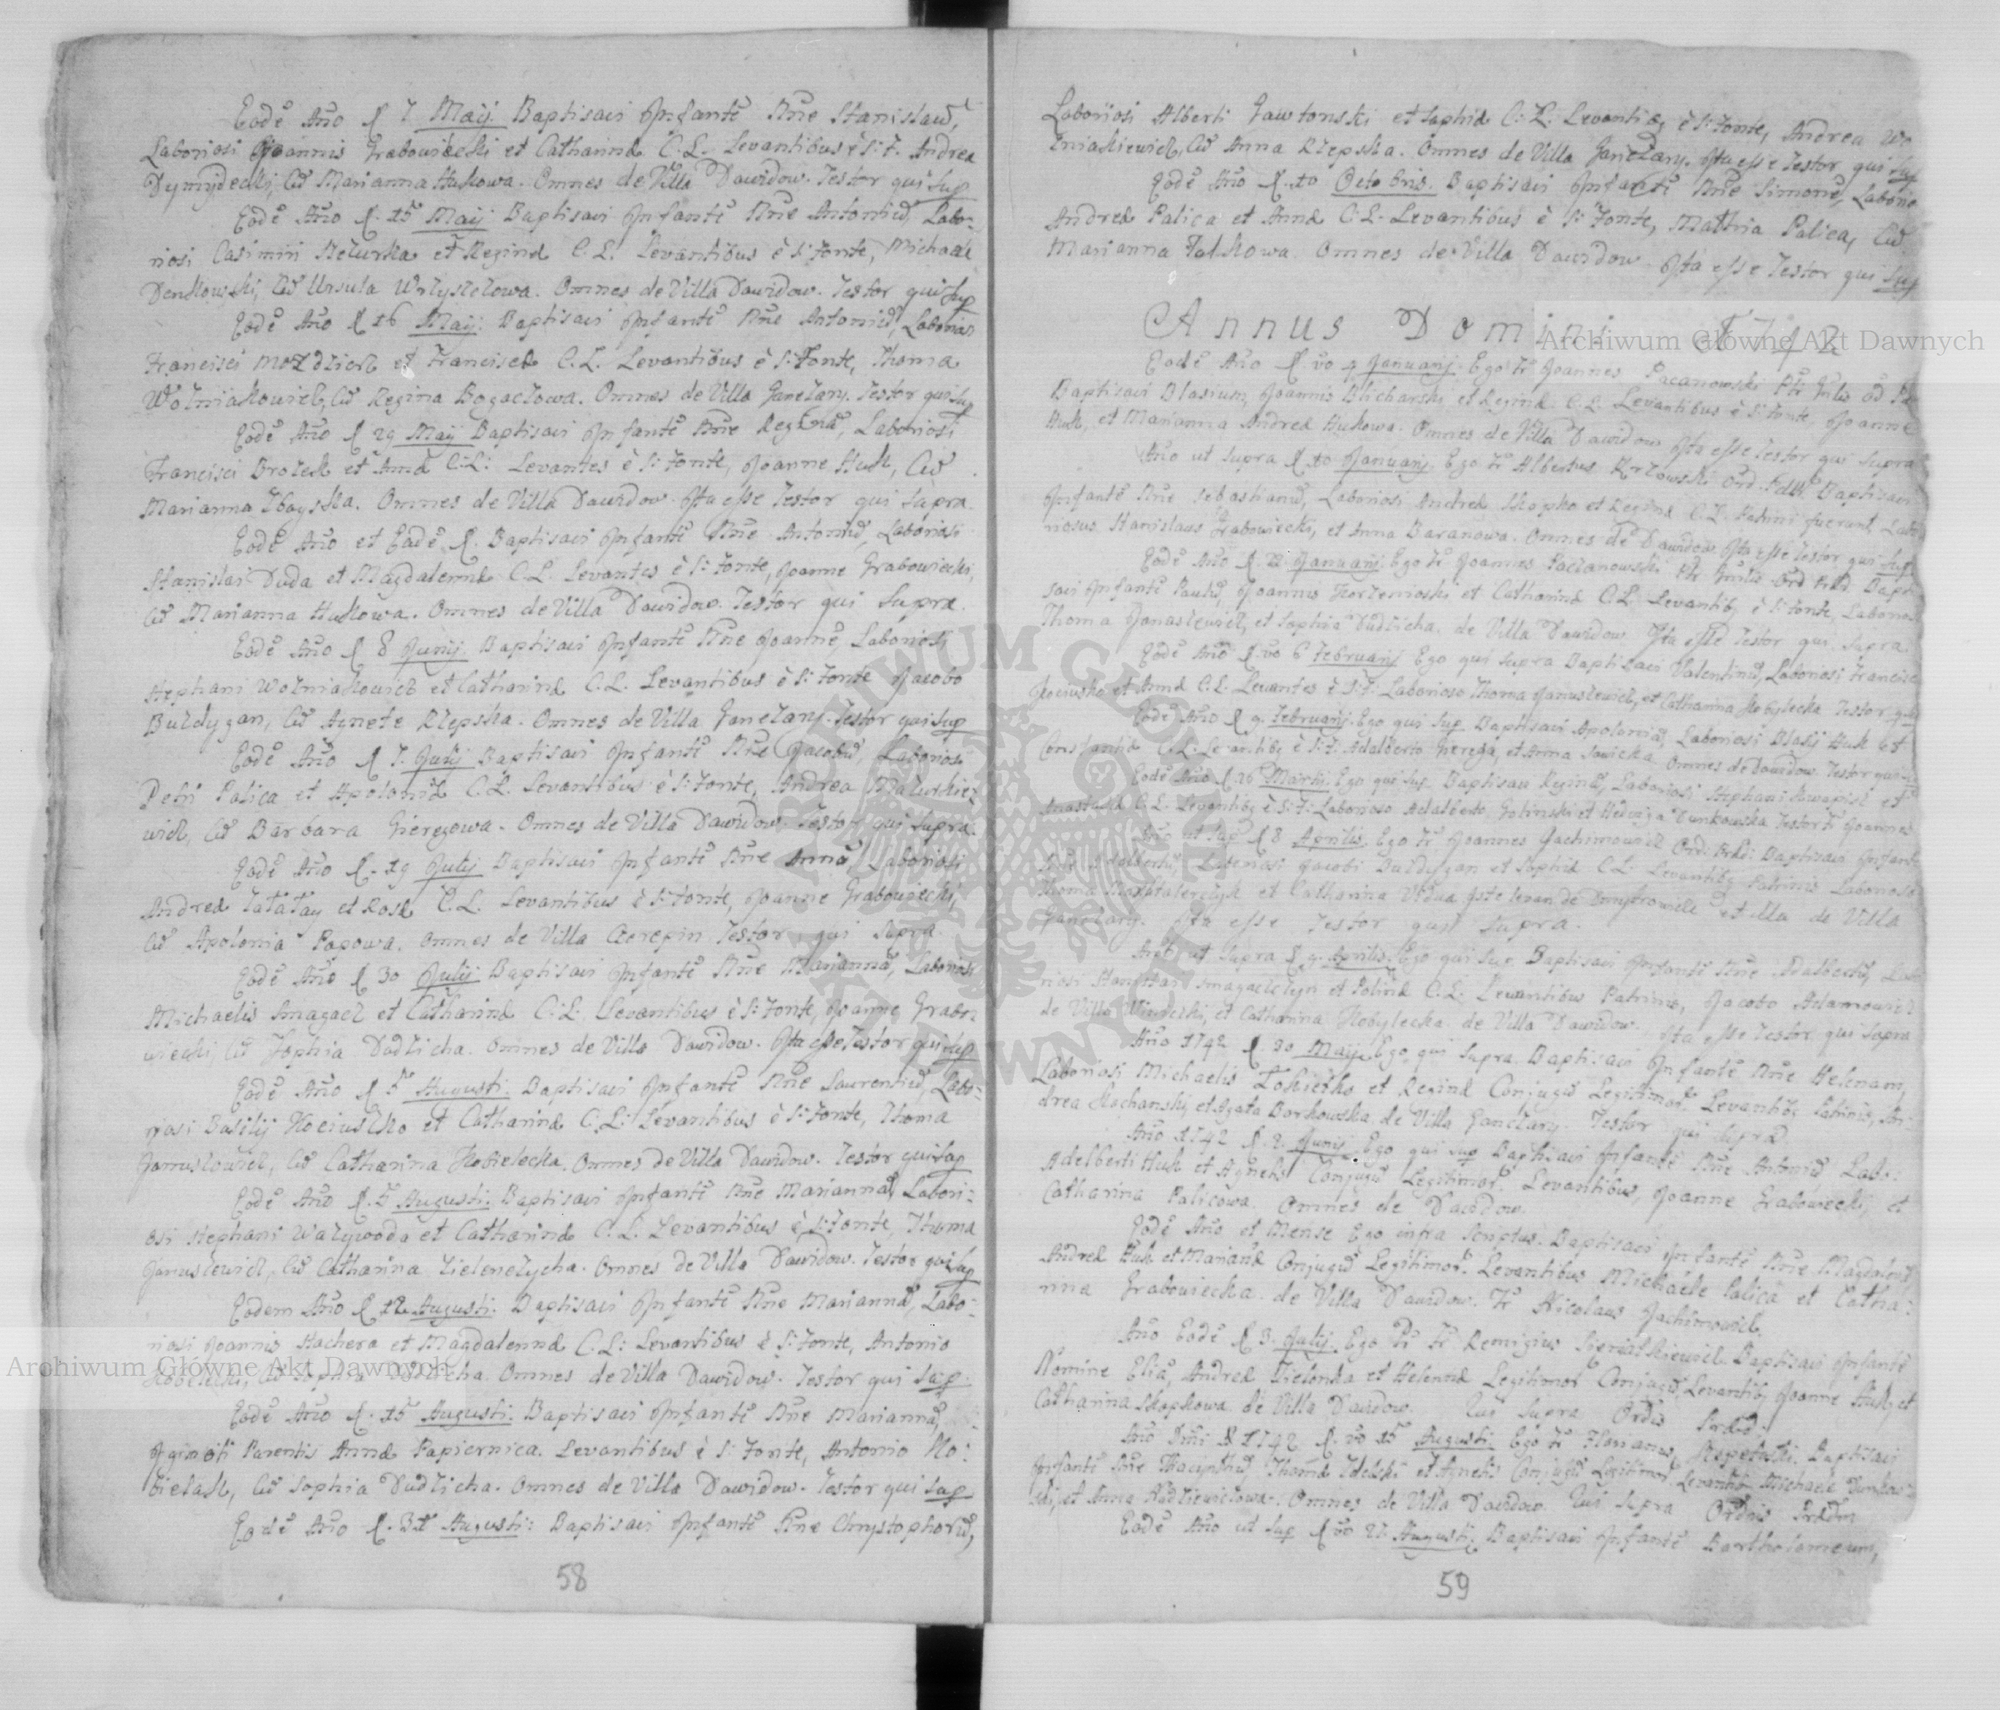 Eodē Año d 7 Maij. Baptisavi Infantē Nñe Stanislaū,
Laboriosi Joannis Grabowiecki et Catharinæ C. L. Levantibus è S: F. Andrea
Dymijdecki, Cū Marianna Hukowa. Omnes de Villa Dawidow. Testor qui sup
Eodē Año d. 15 Maij Baptisavi Infantē Nñe Antoniū, Labo-
riosi Casimiri et Reginæ C. L. Levantibus è S: Fonte, Michaele
Denkowski, Cū Ursula. Omnes de Villa Dawidow. Testor qui sup
Eodē Año d 16 Maij. Baptisavi Infantē Nñe Antoniū, Laborios
Francisci Mozdzierz et Franciscæ C. L. Levantibus è S: Fonte, Thoma
Wozniakowicz, Cū Regina Bogaczowa. Omnes de Villa Ganczary. Testor qui sup
Eodē Año d 29 Maij Baptisavi Infantē Nñe Reginā, Laboriosi
Francisci Brozek et Annæ C: L: Levantes è S: Fonte, Joanne Huk, Cū
Marianna Zboyska. Omnes de Villa Dawidow. Ita esse Testor qui supra.
Eodē Año et Eadē d. Baptisavi Infantē Nñe Antoniū, Laboriosi
Stanislai Duda et Magdalennæ C. L. Levantes è S: Fonte, Joanne Grabowiecki,
Cū Marianna Hukowa. Omnes de Villa Dawidow. Testor qui supra.
Eodē Año d 8 Junij. Baptisavi Infantē Nñe Joannē, Laboriosi
Stephani Wozniakowicz et Catharinæ C. L. Levantibus è S: Fonte Jacobo
Buldygan, Cū Agnete Rzepska. Omnes de Villa Ganczary. Testor qui sup
Eodē Año d 7. Julij Baptisavi Infantē Nñe Jacobū, Laboriosi
Petri Palica et Apoloniæ C. L. Levantibus è S: Fonte, Andrea Mazurkie-
wicz, Cū Barbara Gieregowa. Omnes de Villa Dawidow. Testor qui supra.
Eodē Año d. 19 Julij Baptisavi Infantē Nñe Annā, Laboriosi
Andreæ Tatatay et Rosæ C. L. Levantibus è S: Fonte, Joanne Grabowiecki,
Cū Apolonia Popowa. Omnes de Villa Czerepin Testor qui supra.
Eodē Año d 30 Julij Baptisavi Infantē Nñe Mariannā, Laboriosi
Michaelis Smagacz et Catharinæ C. L. Levantibus è S: Fonte, Joanne Grabo-
wiecki, Cū Zophia Dudzicha. Omnes de Villa Dawidow. Ita esse Testor qui sup
Eodē Año d 5 Augusti. Baptisavi Infantē Nñe Laurentiū, Labo-
riosi Basilij Kociuszko et Catharinæ C. L: Levantibus è S: Fonte, Thoma
Januszowicz, Cū Catharina Kobielecka. Omnes de Villa Dawidow. Testor qui sup
Eodē Año d. 5 Augusti: Baptisavi Infantē Nñe Mariannā, Labori-
osi Stephani Warywoda et Catharinæ C. L. Levantibus è S: Fonte, Thoma
Januszewicz, Cū Catharina Zielenczycha. Omnes de Villa Dawidow. Testor qui sup
Eodem Año d 12 Augusti: Baptisavi Infantē Nñe Mariannā, Labo-
riosi Joannis Kachera et Magdalennæ C. L: Levantibus è S: Fonte, Antonio
Kobielecki, Cū Sophia Dudzicha. Omnes de Villa Dawidow. Testor qui sup.
Eodē Año d. 15 Augusti. Baptisavi Infantē Nñe Mariannā,
Ignoti Parentis Annæ Papiernica. Levantibus è S: Fonte, Antonio Ko:
bielak, Cū Sophia Dudzicha. Omnes de Villa Dawidow. Testor qui sup
Eodē Año d. 31 Augusti: Baptisavi Infantē Nñe Chrystophorū,
58
Laboriosi Alberti Gawronski et Sophiæ C: L. Levantib, è S: Fonte, Andrea Wo
zniakiewicz, Cū Anna Rzepska. Omnes de Villa Ganczary. Ita esse Testor qui sup
Eodē Año d. 10 Octobris. Baptisavi Infantē Nñe Simonē, Laborio
Andreæ Palica et Annæ C. L. Levantibus è S: Fonte, Mathia Palica, Cū
Marianna Falkowa. Omnes de Villa Dawidow. Ita esse Testor qui sup
Annus Domini 1742
Eodē Año d. vo 4 Januarij. Ego Fr Joannes Pacanowski
Baptisavi Blasium, Joannis Blicharski et Reginæ C. L. Levantibus è S: Fonte, Joanne
Huk, et Marianna Andreæ Hukowa. Omnes de Villa Dawidow Ita esse Testor qui supra
Año ut supra d 10 Januarij Ego Fr Albertus Kozlowski Ord: Præd: Baptisavi
Infantē Nñe Sebastianū, Laboriosi Andreæ Skopko et Reginæ C. L. Patrini fuerunt Labo
riosus Stanislaus Grabowiecki, et Anna Baranowa. Omnes de Dawidow Ita esse Testor qui sup
Eodē Año d. 22 Januarij Ego Fr Joannes Paczanowski Ord Præd. Bapti
savi Infantē Paulū, Joannis Korzenioski et Catharinæ C. L. Levantib, è S: Fonte, Laborio
Thoma Janaszewicz, et Sophia Dudzicha. de Villa Dawidow Ita esse Testor qui supra
Eodē Año d. vo 6 Februarij Ego qui supra Baptisavi Valentinū, Laboriosi Francisci
Kociusko et Annæ C. L. Levantes è S: F: Laborioso Thoma Januszewicz, et Catharina Kobylecka Testor qui
Eodē Año d 9. Februarij. Ego qui sup Baptisavi Apoloniā, Laboriosi Blasij Huk et
Constantiæ C. L. Levantib, è S: F: Adalberto Gierega, et Anna Sawicka Omnes de Dawidow. Testor qui sup
Eodē Año d. 26 Martij. Ego qui sup Baptisavi Reginā, Laboriosi Stephani Kwapisz et
Anastasiæ C. L. Levantib, è S: F: Laborioso Adalberto Golinski et Hedviga Dunkowska Testor Fr Joannes
Año ut sup d 8 Aprilis. Ego Fr Joannes Jachimowicz Ord: Præd: Baptisavi Infantē
Nñe Adelbertū, Laboriosi Jacobi Buldygan et Sophiæ C. L. Levantib, Patrinis Laborioso
Thoma et Catharina Vidua Iste Ievan de Dmytrowice et illa de Villa
Ganczary. Ita esse Testor qui supra.
Año ut supra d 9. Aprilis. Ego qui sup. Baptisavi Infantē Nñe Adalbertū, Labo
riosi et C. L. Levantibus Patrinis, Jacobo Adamowicz
de Villa Winiczki, et Catharina Kobylecka de Villa Dawidow. Ita esse Testor qui supra
Año 1742 d. 20 Maij Ego qui supra. Baptisavi Infantē Nñe Helenam,
Laboriosi Michaelis et Reginæ Conjugū Legitimor. Levantib, Patrinis, An-
drea Kochanski et Agata Borkowska de Villa Ganczary. Testor qui supra.
Año 1742 d. 2. Junij. Ego qui sup Baptisavi Infantē Nñe Antoniū Labo:
Adelberti Huk et Agnetis Conjugū Legitimor. Levantibus, Joanne Grabowiecki, et
Catharina Palicowa. Omnes de Dawidow.
Eodē Año et Mense Ego infra scriptus. Baptisavi Infantē Nñe Magdalenā
Andreæ Huk et Mariannæ Conjugū Legitimor. Levantibus Michaele Palica et Catha:
rina Grabowiecka. de Villa Dawidow. Fr Nicolaus Jachimowicz.
Año Eodē d 3. Julij. Ego Fr Remigius Sieniatkiewicz. Baptisavi Infantē
Nomine Eliā, Andreæ Zielonka et Helennæ Legitimor Conjugū, Levantib, Joanne Huk, et
Catharina Skopkowa. de Villa Dawidow. Qui supra Ordis Præd:
Año Dñi 1742 d. vo 15 Augusti. Ego Fr Florianus Baptisavi
Infantē Nñe Hiacynthū, Thomæ et Agnetis Conjugū Legitimor Levantib, Michaele Dunkow-
ski, et Anna. Omnes de Villa Dawidow. Qui supra Ordis Præd.
Eodē Año ut sup d vo 22 Augusti. Baptisavi Infantē Bartholomeum,
59
Archiwum Główne Akt Dawnych
Archiwum Główne Akt Dawnych
ARCHIWUM GŁÓWNE AKT DAWNYCH